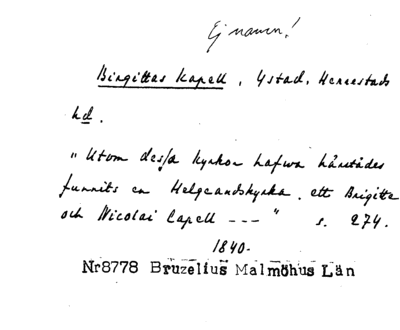 Ej namn!
Birgittas Kapell, Ystad, Herrestads
hd.
"Utom dessa kyrkor hafwa härstädes
funnits en Helgeandskyrka, ett Brigitte
och Nicolai Capell --- " s. 274.
1840.
Nr8778 Bruzelius Malmöhus Län